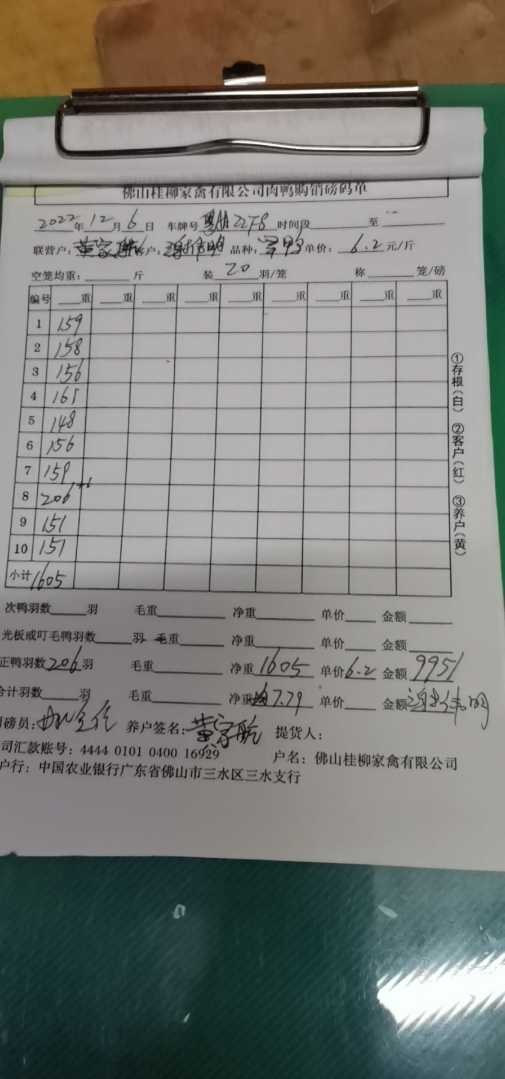 佛山桂柳家禽有限公司肉鸭购销磅码单
2022年12月6日 车牌号 时间段 至
联营户: 黄家航 客户: 谢伟明 品种: 单价: 6.2元/斤
空笼均重: 斤 装20羽/笼 称 笼/磅
编号 重 重 重 重 重 重 重 重
1 159
2 158
3 156
4 161
5 148
6 156
7 159
8 206 +6
9 151
10 151
小计 1605
次鸭羽数 羽 毛重 净重 单价 金额
光板或叮毛鸭羽数 羽 毛重 净重 单价 金额
正鸭羽数206羽 毛重 净重1605 单价6.2 金额9951
合计羽数 羽 毛重 净重 7.79 单价 金额 谢伟明
磅员: 养户签名: 黄家航 提货人:
司汇款账号: 4444 0101 0400 16929 户名: 佛山桂柳家禽有限公司
户行: 中国农业银行广东省佛山市三水区三水支行
①存根(白) ②客户(红) ③养户(黄)